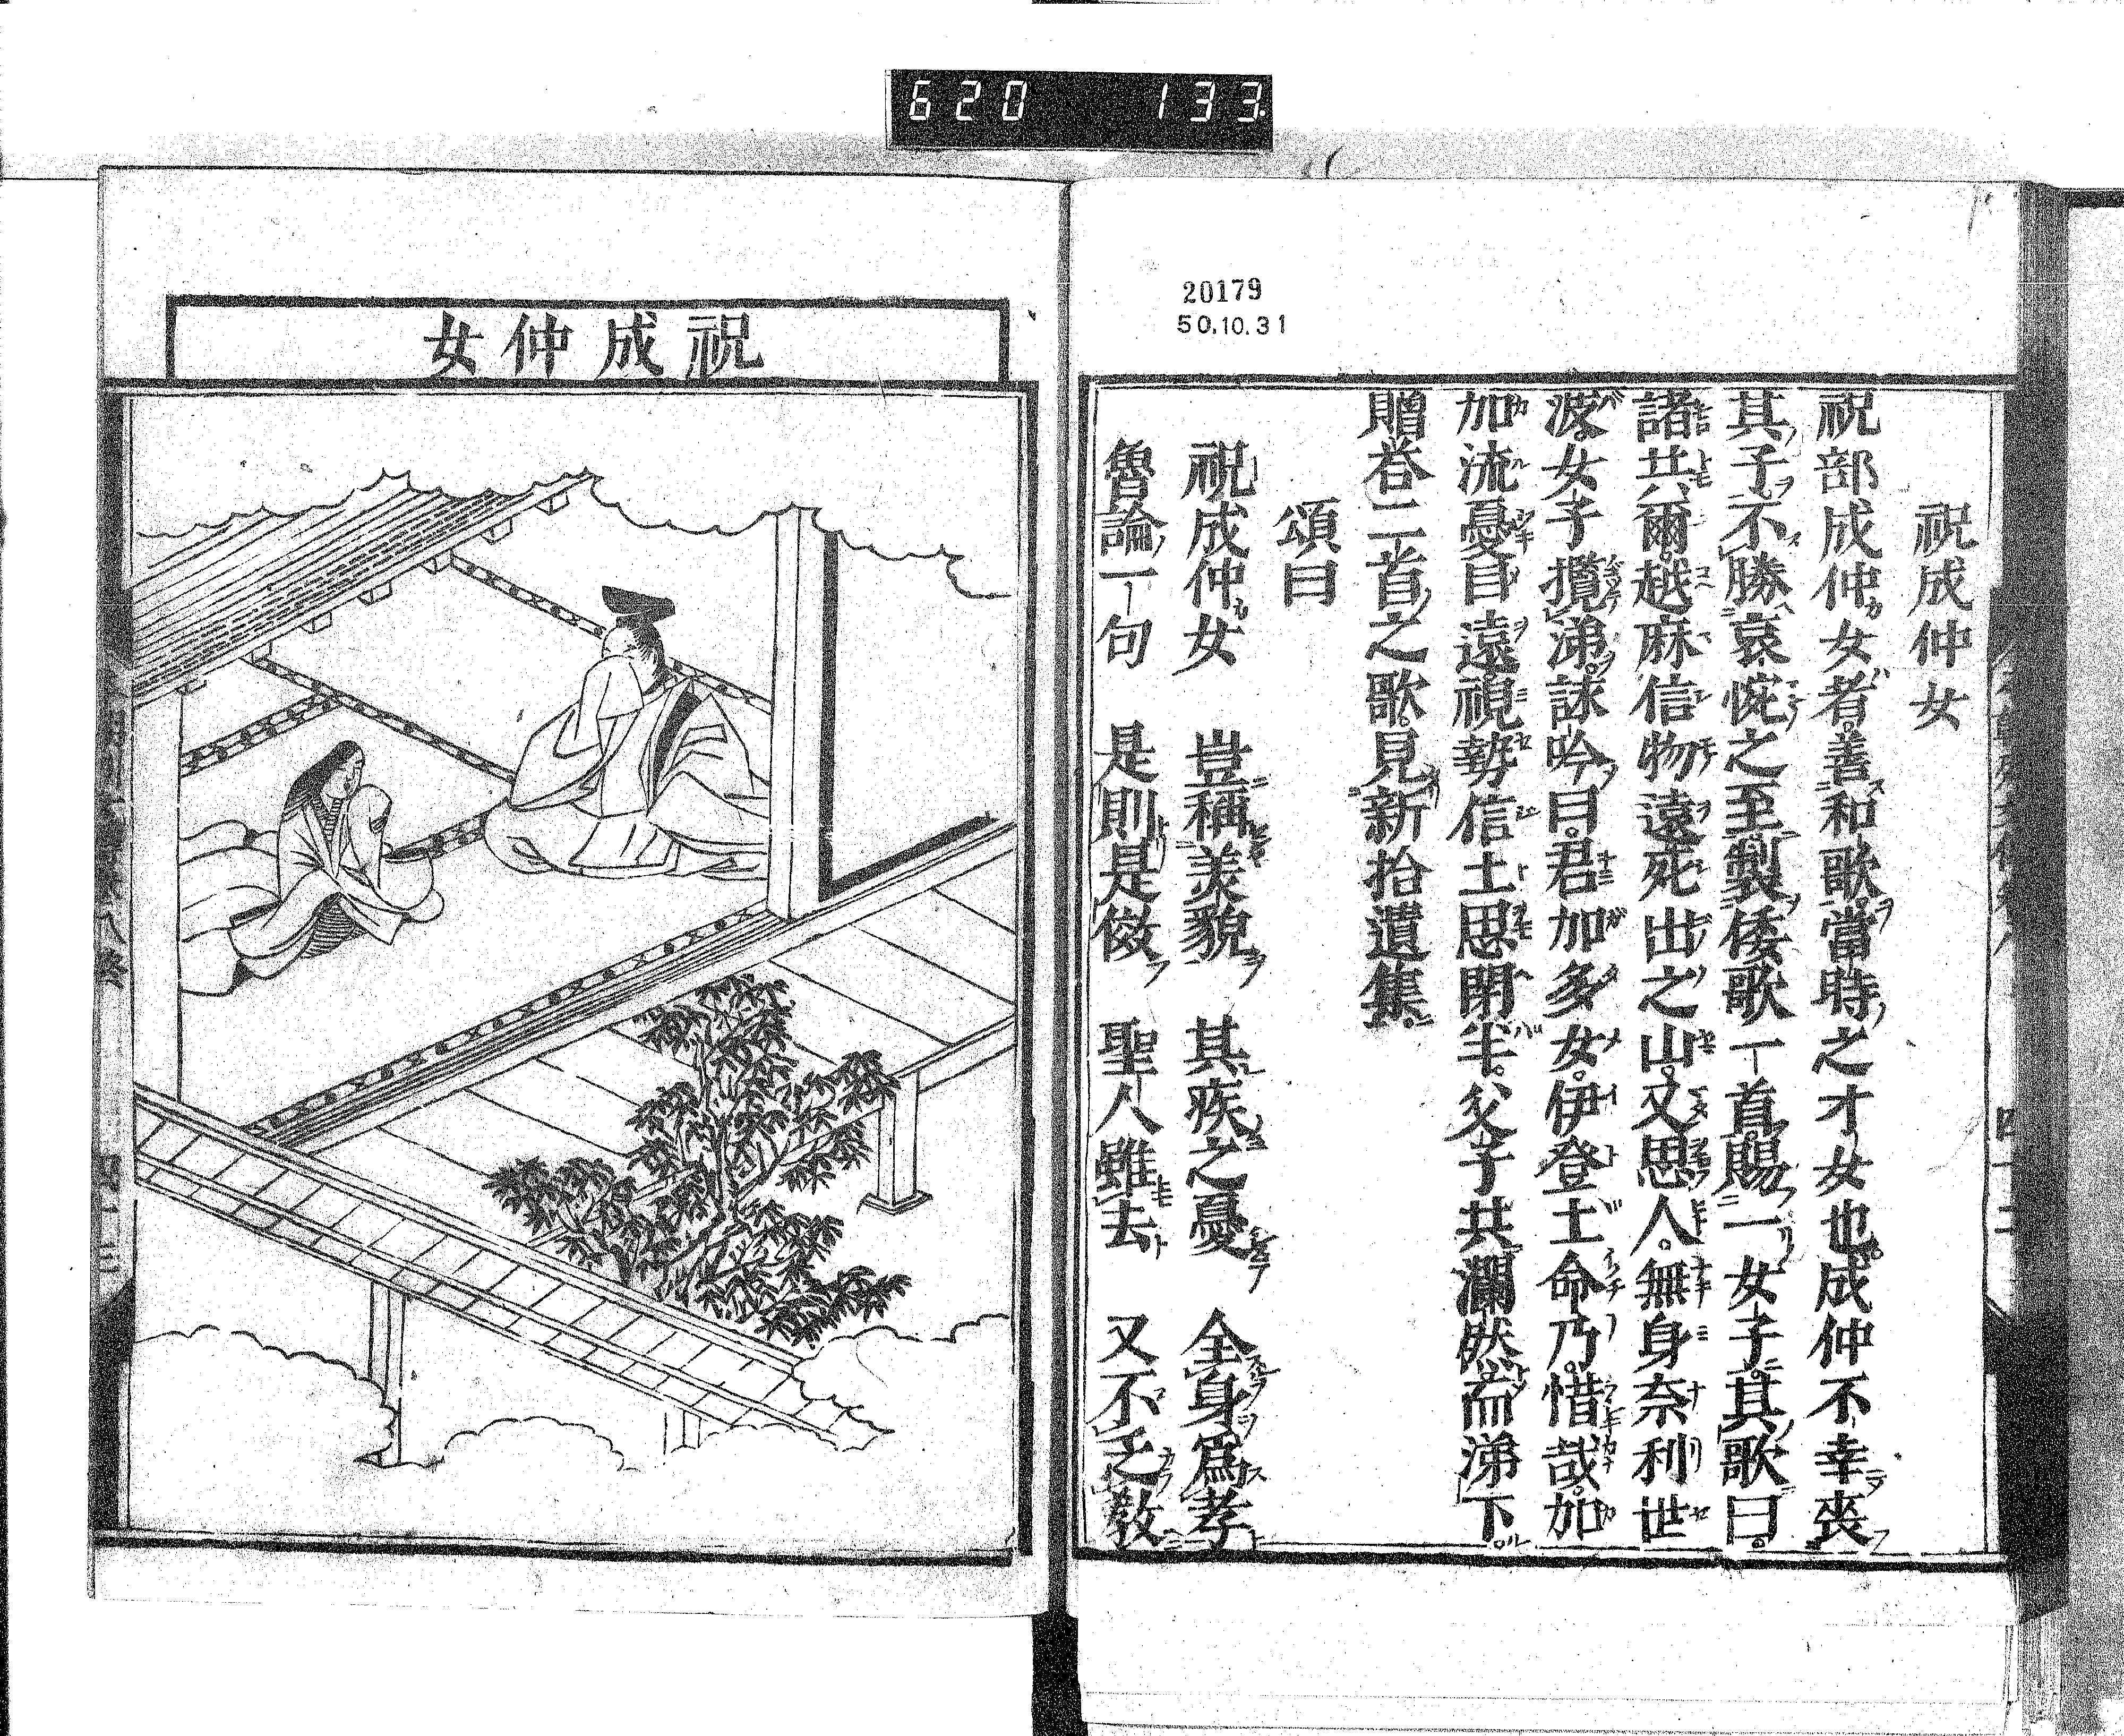 620 133
20179
50.10.31
祝成仲女
祝部成仲女者善和歌當時之才女也成仲不幸喪
其子不勝哀惋之至製倭歌一首賜一女子其歌曰
諸共爾越麻信物遠死出之山又思人無身奈利世
波女子攬涕詠吟曰君加多女伊登土命乃惜哉加
加流憂目遠視勢信土思閇半父子共瀾然而涕下
贈答二首之歌見新拾遺集
頌曰
祝成仲女 豈稱美貌 其疾之憂 全身爲孝
魯論一句 是則是傚 聖人雖去 又不乏敎
祝成仲女